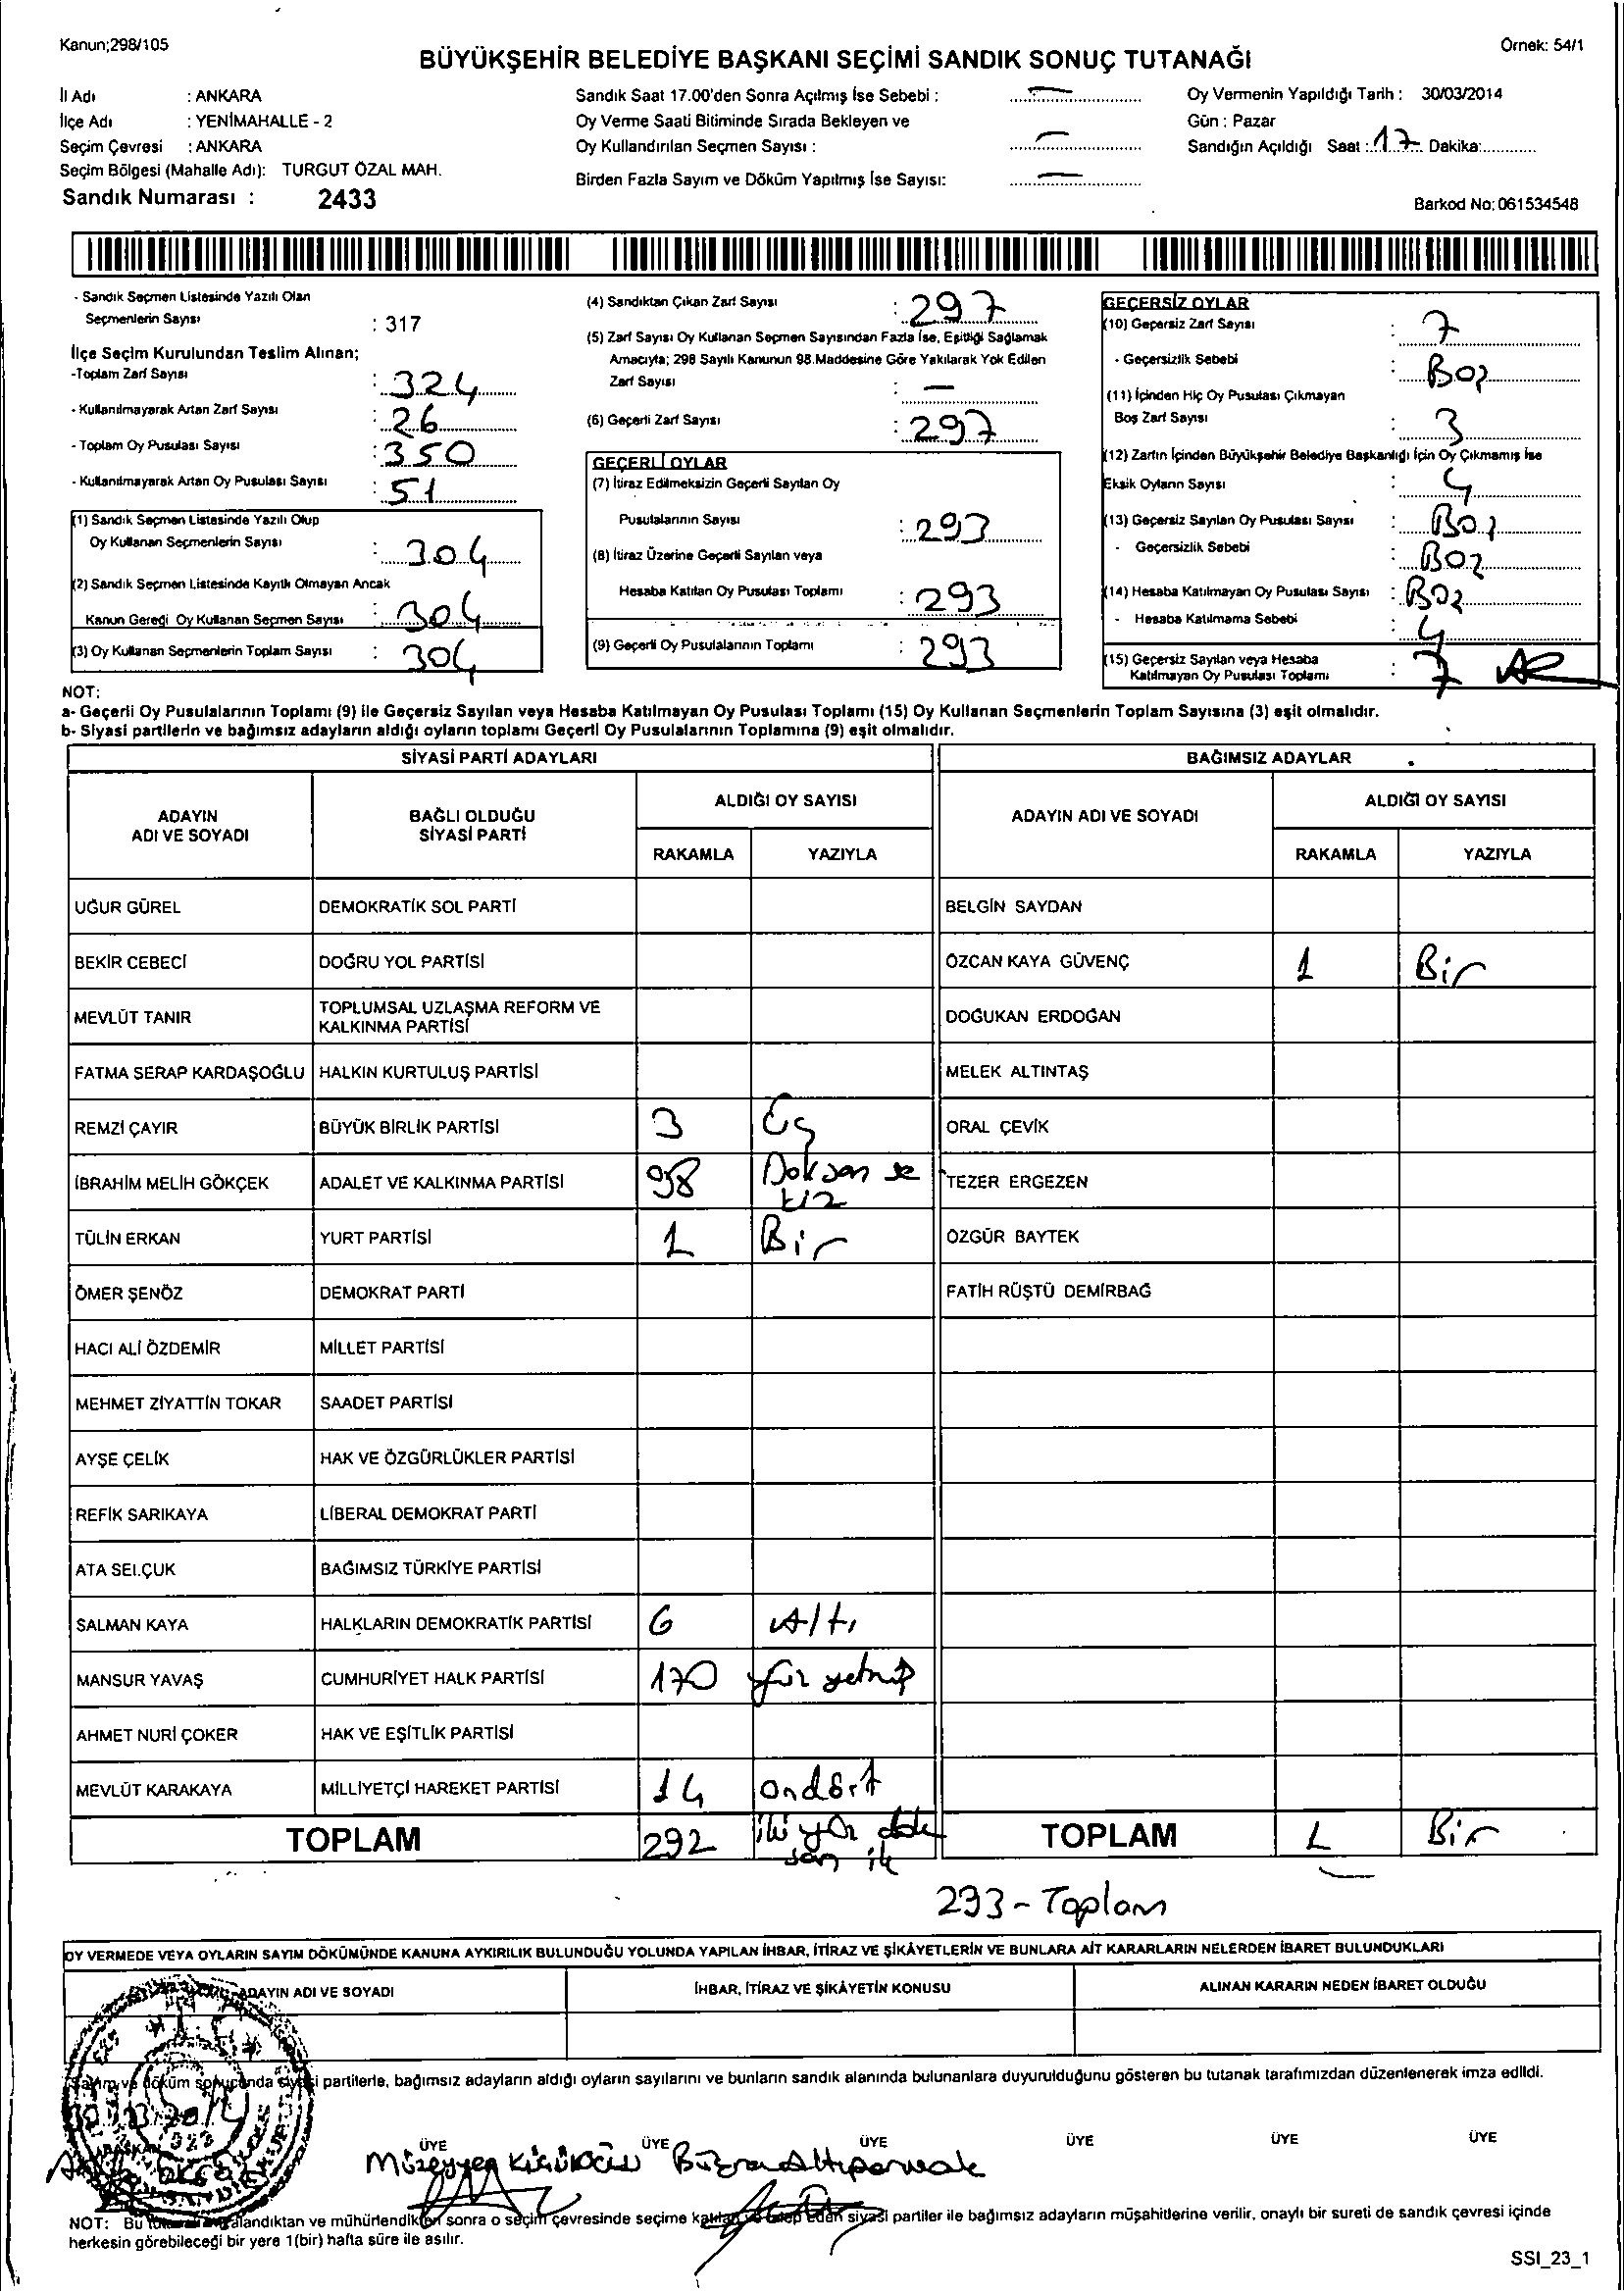 Kanun;298/105
Örnek: 54/1
BÜYÜKŞEHİR BELEDİYE BAŞKANI SEÇİMİ SANDIK SONUÇ TUTANAĞI
İl Adı : ANKARA
İlçe Adı : YENİMAHALLE - 2
Seçim Çevresi : ANKARA
Seçim Bölgesi (Mahalle Adı): TURGUT ÖZAL MAH.
Sandık Numarası : 2433
Sandık Saat 17.00'den Sonra Açılmış İse Sebebi : —
Oy Verme Saati Bitiminde Sırada Bekleyen ve
Oy Kullandırılan Seçmen Sayısı : —
Birden Fazla Sayım ve Döküm Yapılmış İse Sayısı: —
Oy Vermenin Yapıldığı Tarih : 30/03/2014
Gün : Pazar
Sandığın Açıldığı Saat : 17 Dakika:
Barkod No: 061534548
- Sandık Seçmen Listesinde Yazılı Olan
Seçmenlerin Sayısı : 317
İlçe Seçim Kurulundan Teslim Alınan;
-Toplam Zarf Sayısı : 324
- Kullanılmayarak Artan Zarf Sayısı : 26
- Toplam Oy Pusulası Sayısı : 350
- Kullanılmayarak Artan Oy Pusulası Sayısı : 51
(1) Sandık Seçmen Listesinde Yazılı Olup
Oy Kullanan Seçmenlerin Sayısı : 304
(2) Sandık Seçmen Listesinde Kayıtlı Olmayan Ancak
Kanun Gereği Oy Kullanan Seçmen Sayısı : 304
(3) Oy Kullanan Seçmenlerin Toplam Sayısı : 304
(4) Sandıktan Çıkan Zarf Sayısı : 297
(5) Zarf Sayısı Oy Kullanan Seçmen Sayısından Fazla İse, Eşitliği Sağlamak
Amacıyla; 298 Sayılı Kanunun 98.Maddesine Göre Yakılarak Yok Edilen
Zarf Sayısı : —
(6) Geçerli Zarf Sayısı : 297
GEÇERLİ OYLAR
(7) İtiraz Edilmeksizin Geçerli Sayılan Oy
Pusulalarının Sayısı : 293
(8) İtiraz Üzerine Geçerli Sayılan veya
Hesaba Katılan Oy Pusulası Toplamı : 293
(9) Geçerli Oy Pusulalarının Toplamı : 293
GEÇERSİZ OYLAR
(10) Geçersiz Zarf Sayısı : 7
- Geçersizlik Sebebi : Boş
(11) İçinden Hiç Oy Pusulası Çıkmayan
Boş Zarf Sayısı : 3
(12) Zarfın İçinden Büyükşehir Belediye Başkanlığı İçin Oy Çıkmamış İse
Eksik Oyların Sayısı : 4
(13) Geçersiz Sayılan Oy Pusulası Sayısı : Boş
- Geçersizlik Sebebi : Boş
(14) Hesaba Katılmayan Oy Pusulası Sayısı : Boş
- Hesaba Katılmama Sebebi : 4
(15) Geçersiz Sayılan veya Hesaba
Katılmayan Oy Pusulası Toplamı : 7
NOT:
a- Geçerli Oy Pusulalarının Toplamı (9) ile Geçersiz Sayılan veya Hesaba Katılmayan Oy Pusulası Toplamı (15) Oy Kullanan Seçmenlerin Toplam Sayısına (3) eşit olmalıdır.
b- Siyasi partilerin ve bağımsız adayların aldığı oyların toplamı Geçerli Oy Pusulalarının Toplamına (9) eşit olmalıdır.
SİYASİ PARTİ ADAYLARI
BAĞIMSIZ ADAYLAR
ADAYIN ADI VE SOYADI
BAĞLI OLDUĞU SİYASİ PARTİ
ALDIĞI OY SAYISI
RAKAMLA YAZIYLA
ADAYIN ADI VE SOYADI
ALDIĞI OY SAYISI
RAKAMLA YAZIYLA
UĞUR GÜREL DEMOKRATİK SOL PARTİ BELGİN SAYDAN
BEKİR CEBECİ DOĞRU YOL PARTİSİ ÖZCAN KAYA GÜVENÇ 1 Bir
MEVLÜT TANIR TOPLUMSAL UZLAŞMA REFORM VE KALKINMA PARTİSİ DOĞUKAN ERDOĞAN
FATMA SERAP KARDAŞOĞLU HALKIN KURTULUŞ PARTİSİ MELEK ALTINTAŞ
REMZİ ÇAYIR BÜYÜK BİRLİK PARTİSİ 3 Üç ORAL ÇEVİK
İBRAHİM MELİH GÖKÇEK ADALET VE KALKINMA PARTİSİ 98 Doksan se kiz TEZER ERGEZEN
TÜLİN ERKAN YURT PARTİSİ 1 Bir ÖZGÜR BAYTEK
ÖMER ŞENÖZ DEMOKRAT PARTİ FATİH RÜŞTÜ DEMİRBAĞ
HACI ALİ ÖZDEMİR MİLLET PARTİSİ
MEHMET ZİYATTİN TOKAR SAADET PARTİSİ
AYŞE ÇELİK HAK VE ÖZGÜRLÜKLER PARTİSİ
REFİK SARIKAYA LİBERAL DEMOKRAT PARTİ
ATA SELÇUK BAĞIMSIZ TÜRKİYE PARTİSİ
SALMAN KAYA HALKLARIN DEMOKRATİK PARTİSİ 6 Altı
MANSUR YAVAŞ CUMHURİYET HALK PARTİSİ 170 yüz yetmiş
AHMET NURİ ÇOKER HAK VE EŞİTLİK PARTİSİ
MEVLÜT KARAKAYA MİLLİYETÇİ HAREKET PARTİSİ 14 ondört
TOPLAM 292 iki yüz dok san iki TOPLAM 1 Bir
293 - Toplam
OY VERMEDE VEYA OYLARIN SAYIM DÖKÜMÜNDE KANUNA AYKIRILIK BULUNDUĞU YOLUNDA YAPILAN İHBAR, İTİRAZ VE ŞİKÂYETLERİN VE BUNLARA AİT KARARLARIN NELERDEN İBARET BULUNDUKLARI
ADAYIN ADI VE SOYADI İHBAR, İTİRAZ VE ŞİKÂYETİN KONUSU ALINAN KARARIN NEDEN İBARET OLDUĞU
Sayım ve döküm sonucunda siyasi partilerle, bağımsız adayların aldığı oyların sayılarını ve bunların sandık alanında bulunanlara duyurulduğunu gösteren bu tutanak tarafımızdan düzenlenerek imza edildi.
30/03/2014
BAŞKAN ÜYE ÜYE ÜYE ÜYE ÜYE ÜYE
Müzeyyen Büşra Altıparmak
NOT: Bu alandıktan ve mühürlendikten sonra o seçim çevresinde seçime katılan ve talep eden siyasi partiler ile bağımsız adayların müşahitlerine verilir, onaylı bir sureti de sandık çevresi içinde
herkesin görebileceği bir yere 1(bir) hafta süre ile asılır.
SSI_23_1